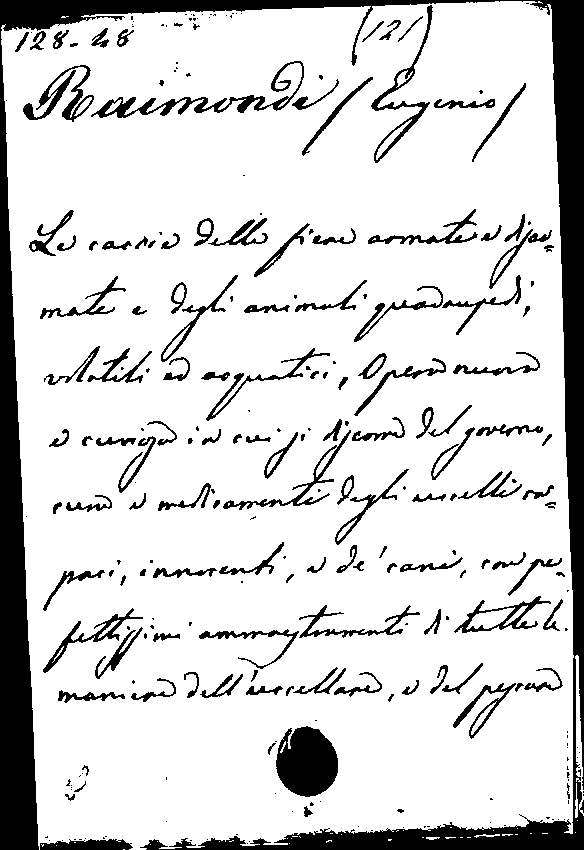 128-48 (121)
Raimondi (Eugenio)
Le caccie delle fiere armate e disar=
mate e degli animali quadrupedi,
volatili ed acquatici, Opera nuova
e curiosa in cui si discorre del governo,
cura e medicamenti degli uccelli ra=
paci, innocenti, e de' cani, con per=
fettissimi ammaestramenti di tutte le
maniere dell'uccellare, e del pescare